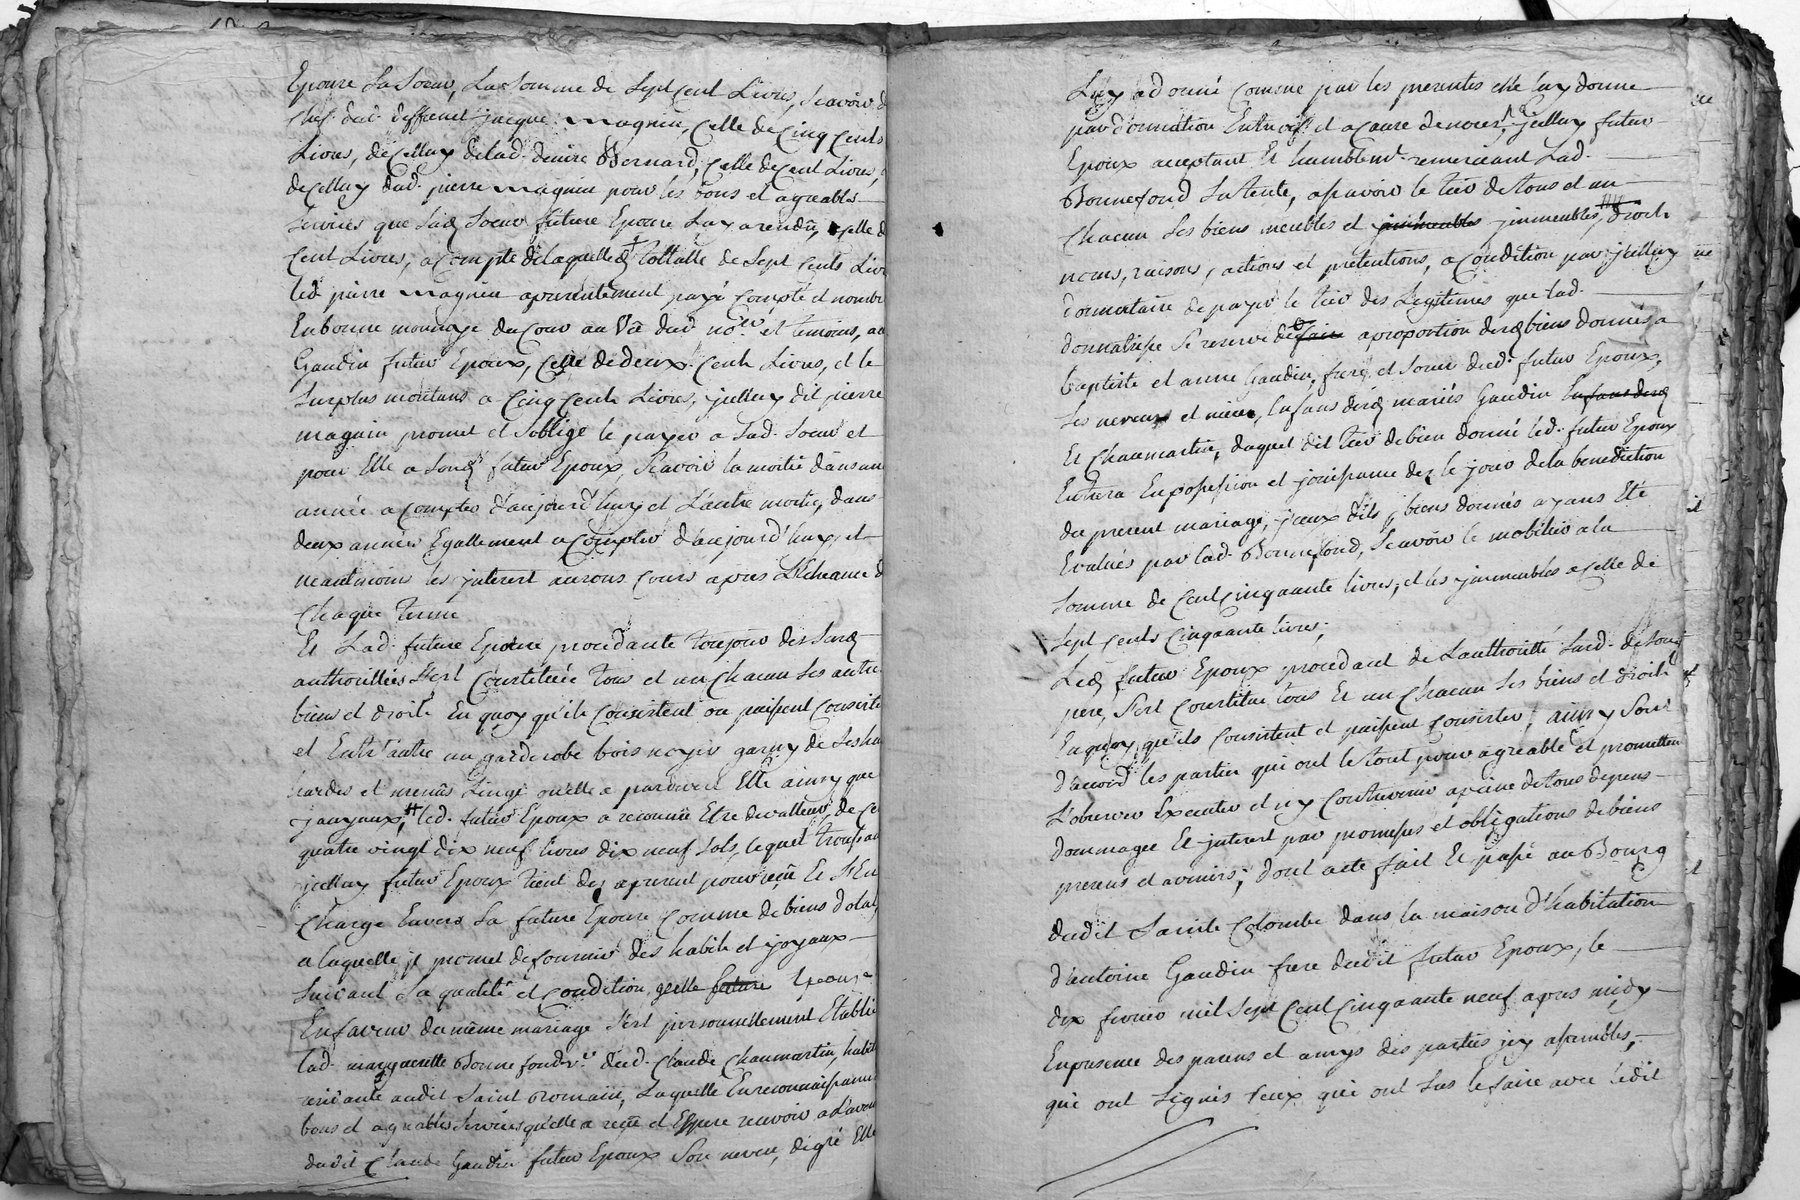 Epouse sa soeur, la somme de sept cent Livres, scavoir d
chef dud. deffunt jacque magnin, celle de Cinq Cents
Livres, de celluy de lad. denise Bernard, celle de Cent Livres,
de celluy dud. pierre magnin pour les bons et agreables
services que sad. soeur future Epouse luy a rendu, celle d
Cent Livres, a Compte de laquelle tottalle de sept Cents Livr
led. pierre magnin a presentement payé Compté et nombr
En bonne monnoye du Cour au Vû dud. no.re et temoins, au
Gaudin futur Epoux, Celle de deux Cents Livres, et le
surplus montans a Cinq Cents Livres, jcelluy dit pierre
magnin promet et s'oblige le payer a sad. soeur et
pour Elle a sond. futur Epoux, scavoir la moitié dans un
année a Compter d'aujourd'huy et l'autre moitié, dans
deux années Egallement a Compter d'aujourd'huy, et
neantmoins les jnterest aurons Cours apres l'Echeance d
Chaque terme
Et Lad. future Epouse procedante toujour des susd.
authorittées s'est Constituée tous et un Chacun ses autre
biens et droits En quoy qu'ils Consistent ou puissent Consiste
et Entr'autre un garderobe bois noyer garny de ses ha
hardes et menus Linge qu'elle a pardevers Elle ainsy que
joyaux, led. futur Epoux a reconnu Etre de valleur, de Ce
quatre vingt dix neuf livres dix neuf sols, lequel troussau
jcelluy futur Epoux tient des a present pour reçu Et s'En
Charge Envers sa future Epouse Comme de biens dotal,
a laquelle jl promet de fournir des habits et joyaux
suivant sa qualité et Condition, jcelle future Epouse
En faveur du même mariage s'est personnellement Etablie
lad. margueritte Bonnefond v.e dud. Claude Chaumartin, habit
residante audit Saint Romain, Laquelle En reconnaissance
bons et agreables services qu'elle a reçu et Espere recevoir a l'aven
dudit Claude Gaudin futur Epoux son neveu, de gré Elle
Luy a donné Comme par les presentes elle luy donne
par donnation Entre vifs et a Cause de noces, a jcelluy futur
Epoux acceptant Et humblem.t remerciant Lad.
Bonnefond sa tente, a scavoir le tier de tous et un
Chacun ses biens meubles et jmmeubles jmmeubles, droits
noms, raisons, actions et pretentions, a Condition par jcelluy
donnataire de payer le tier des Legitimes que lad.
donnatrice se reserve de faire a proportion desd. biens donnés a
baptiste et anne Gaudin, frere et soeur dud. futur Epoux,
ses neveux et niece, Enfans desd. mariés Gaudin Enfans desd.
Et Chaumartin, duquel dit tier de bien donné led. futur Epoux
Entrera En possession et jouissance dez le jour de la benediction
du present mariage, jceux dits biens donnés ayans Eté
Evalués par lad. Bonnefond, scavoir le mobilier a la
somme de Cent Cinquante livres, et les jmmeubles a celle de
sept cents Cinquante livres,
Led. futur Epoux procedant de l'authorité susd. de sond.
pere, s'est Constitué tous Et un Chacun ses biens et droits
En quoy qu'ils Consistent et puissent Consister, ainsy sont
d'accord les parties qui ont le tout pour agreable et promettent
L'observer Executer et n'y Contrevenir a peine de tous depens
dommages Et jnterest par promesses et obligations de biens
presens et avenirs; dont acte fait Et passé au Bourg
dudit Sainte Colombe dans la maison d'habitation
d'antoine Gaudin frere dudit futur Epoux, le
dix fevrier mil sept Cent Cinquante neuf apres midy
En presence des parens et amys des parties jcy assemblés,
qui ont signés Ceux qui ont sus le faire avec ledit